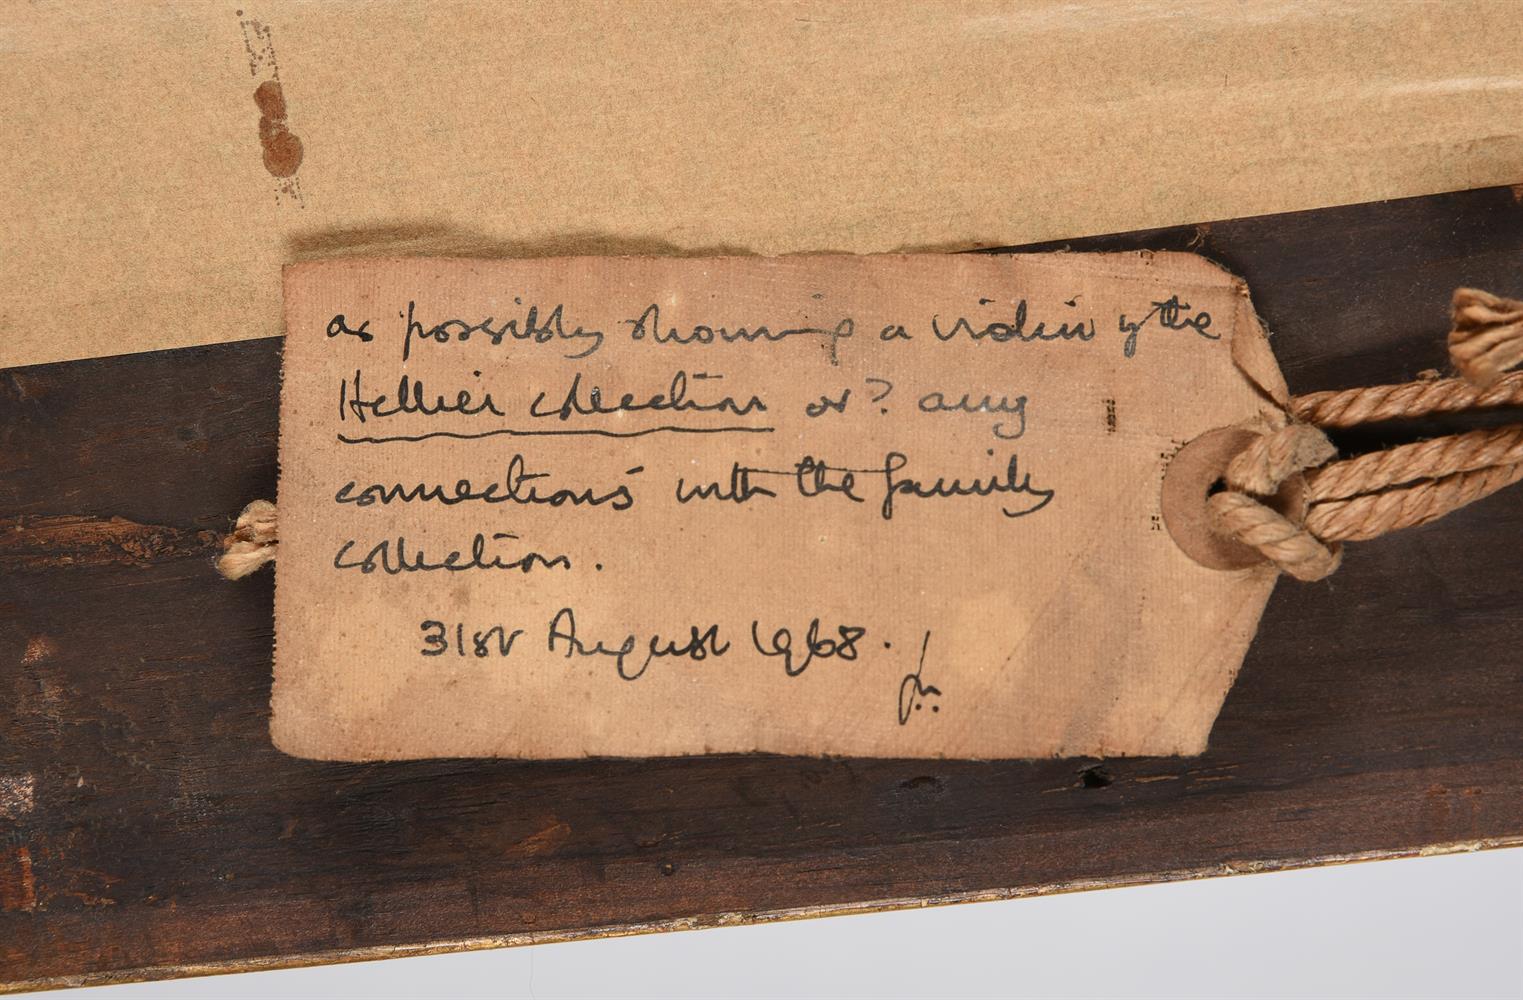 as possibly showing a violin of the
Hellier collection or? any
connections with the family
collection.
31st August 1968.